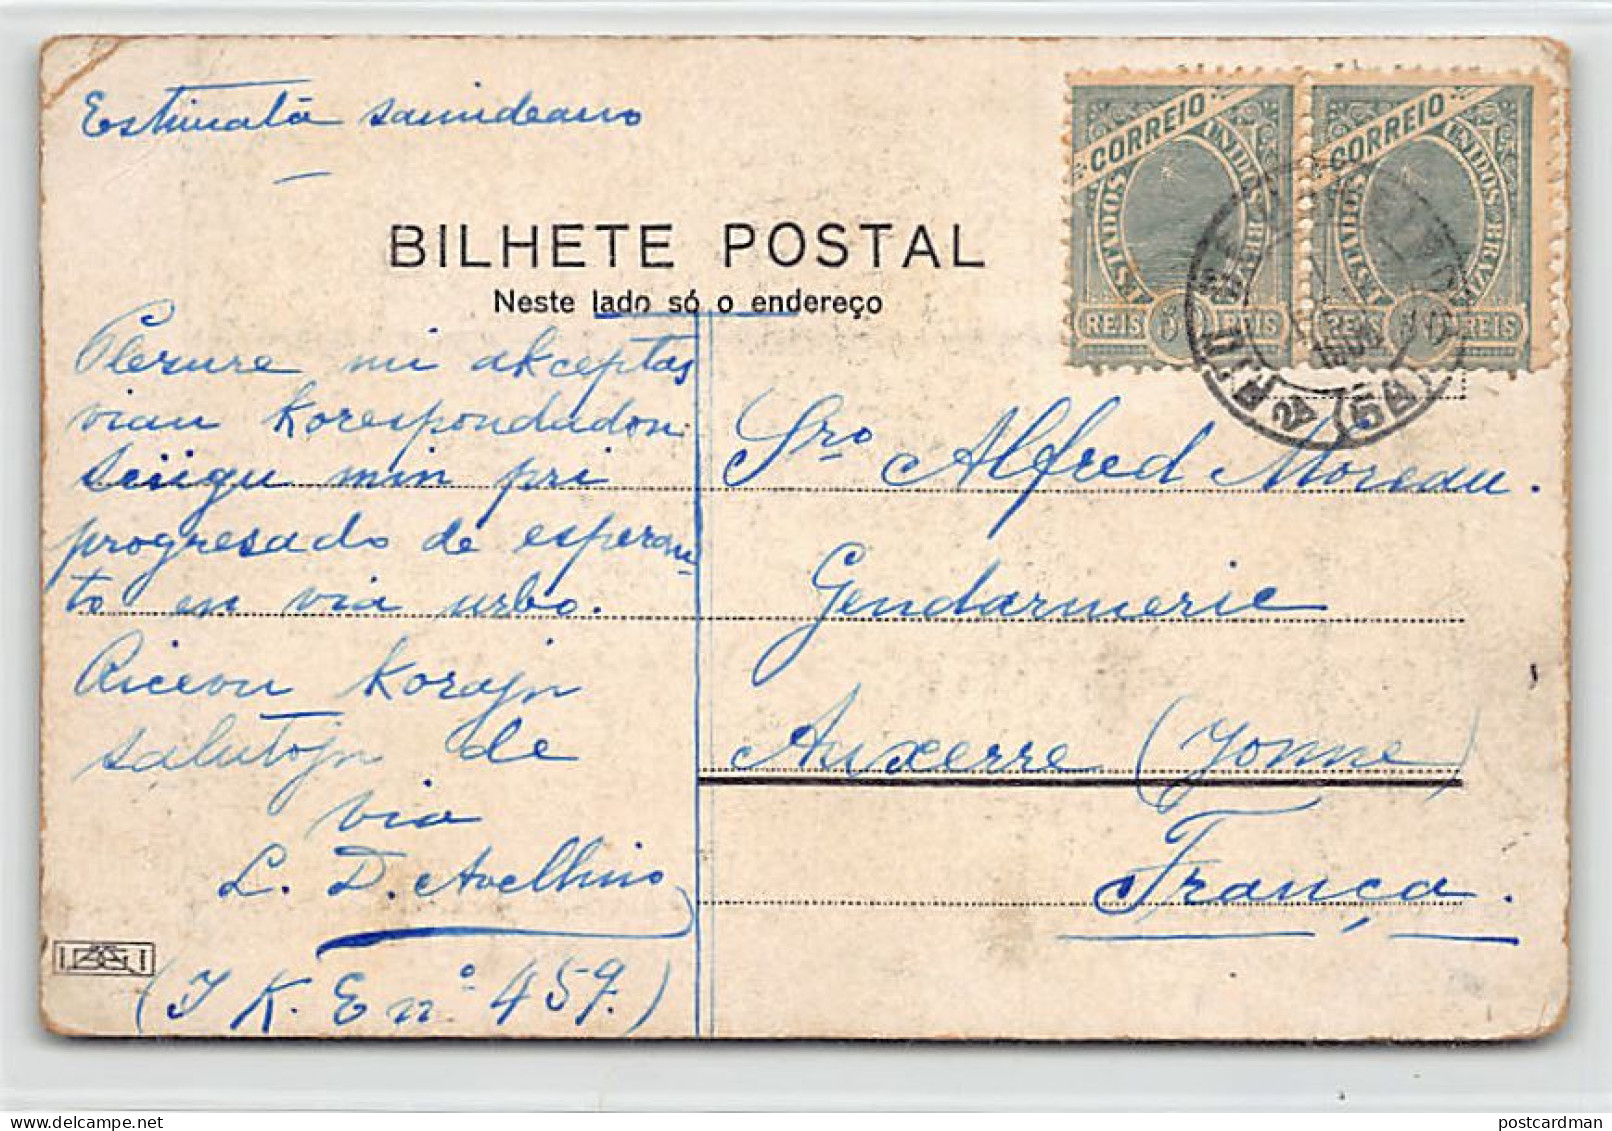 Estimata samideano
BILHETE POSTAL
Neste lado só o endereço
CORREIO
ESTADOS UNIDOS BRAZIL
REIS 50 REIS
CORREIO
ESTADOS UNIDOS BRAZIL
REIS REIS
Plezure mi akceptas
vian korespondadon.
Sciigu min pri
progresado de esperan-
to en via urbo.
Ricevu korajn
salutojn de
via
L. D. Avellino
(J K. E nº 459.)
Sro Alfred Moreau.
Gendarmerie
Auxerre (Yonne)
França.
postcardman